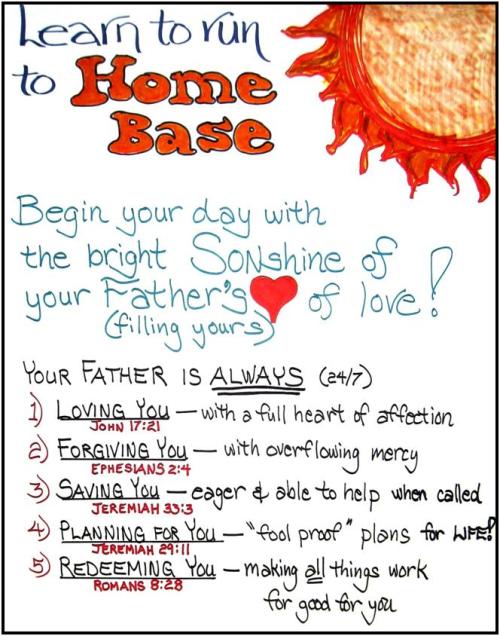 Learn to run
to Home
Base
Begin your day with
the bright SONshine of
your Father's ♥ of love!
(filling yours)
YOUR FATHER IS ALWAYS (24/7)
1) LOVING YOU — with a full heart of affection
JOHN 17:21
2) FORGIVING YOU — with overflowing mercy
EPHESIANS 2:4
3) SAVING YOU — eager & able to help when called
JEREMIAH 33:3
4) PLANNING FOR YOU — "fool proof" plans for LIFE!
JEREMIAH 29:11
5) REDEEMING YOU — making all things work
ROMANS 8:28
for good for you